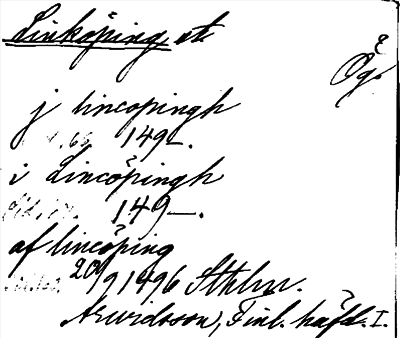 Linköping st.
Ög.
j lincopingh
149-.
i Lincöpingh
149-.
af lincöping
20/9 1496 Sthlm.
Arwidsson, Finl. häfd. I.